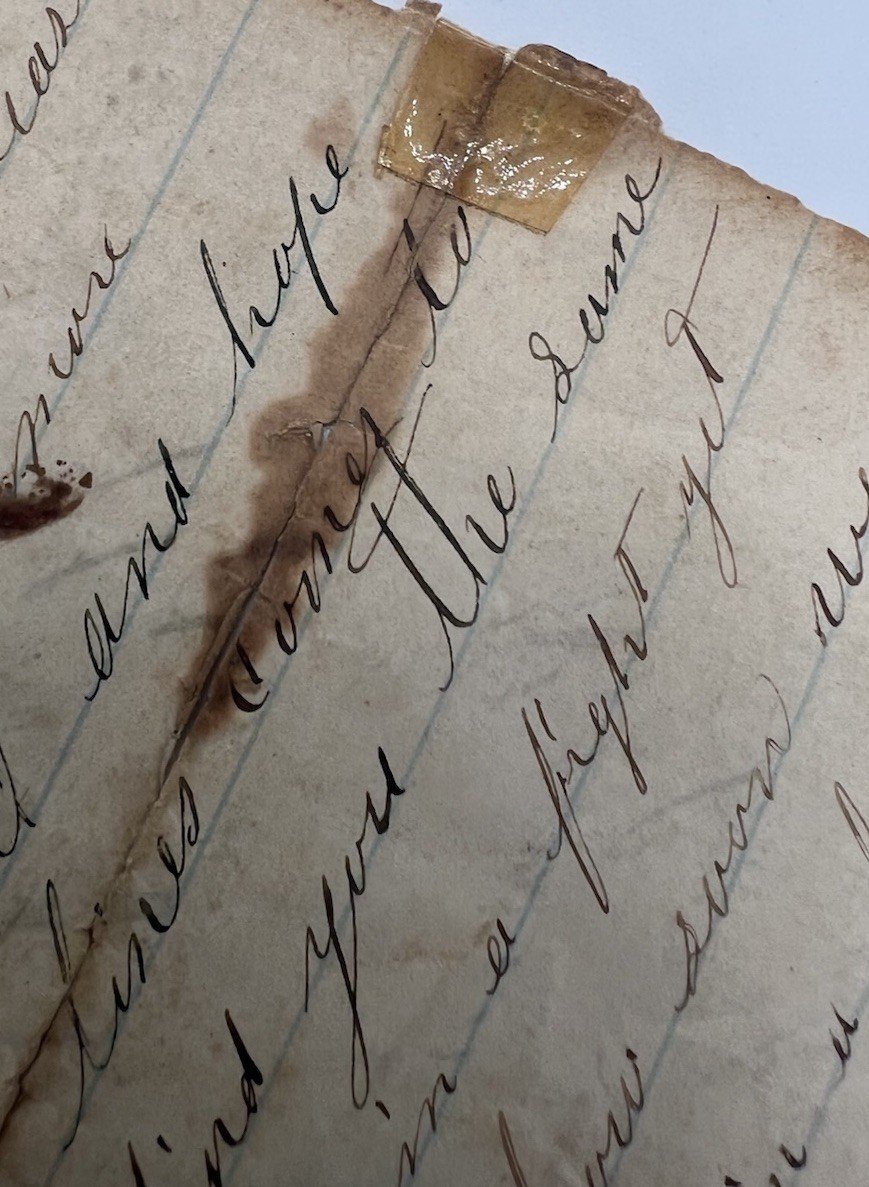 more
and hope
lines comes to
find you the same
in a fight yet
how soon we
in a